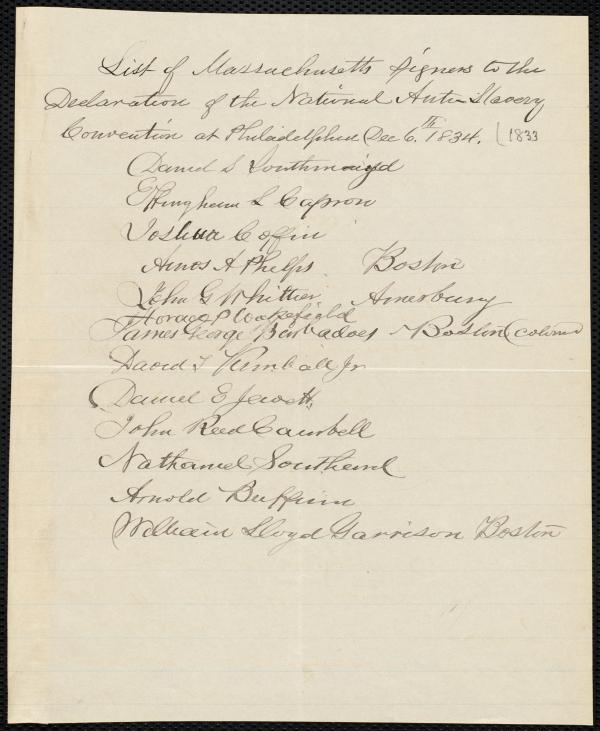 List of Massachusetts Signers to the
Declaration of the National Anti-Slavery
Convention at Philadelphia Dec 6.th 1834. [1833
Daniel S Southmayd
Effingham L Capron
Joshua Coffin
Amos A Phelps Boston
John G Whittier Amerbury
Horace P Wakefield
James George Barbadoes Boston (colored
David T Kimball Jr
Daniel E Jewett,
John Reed Cambell
Nathaniel Southard
Arnold Buffum
William Lloyd Garrison Boston